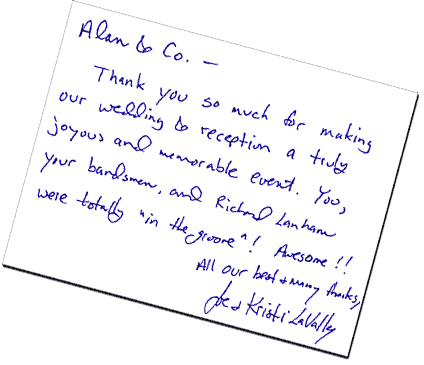 Alan & Co. —
Thank you so much for making
our wedding & reception a truly
joyous and memorable event. You,
your bandsmen, and Richard Lanham
were totally "in the groove"! Awesome!!
All our best & many thanks,
Joe & Kristi LaVally